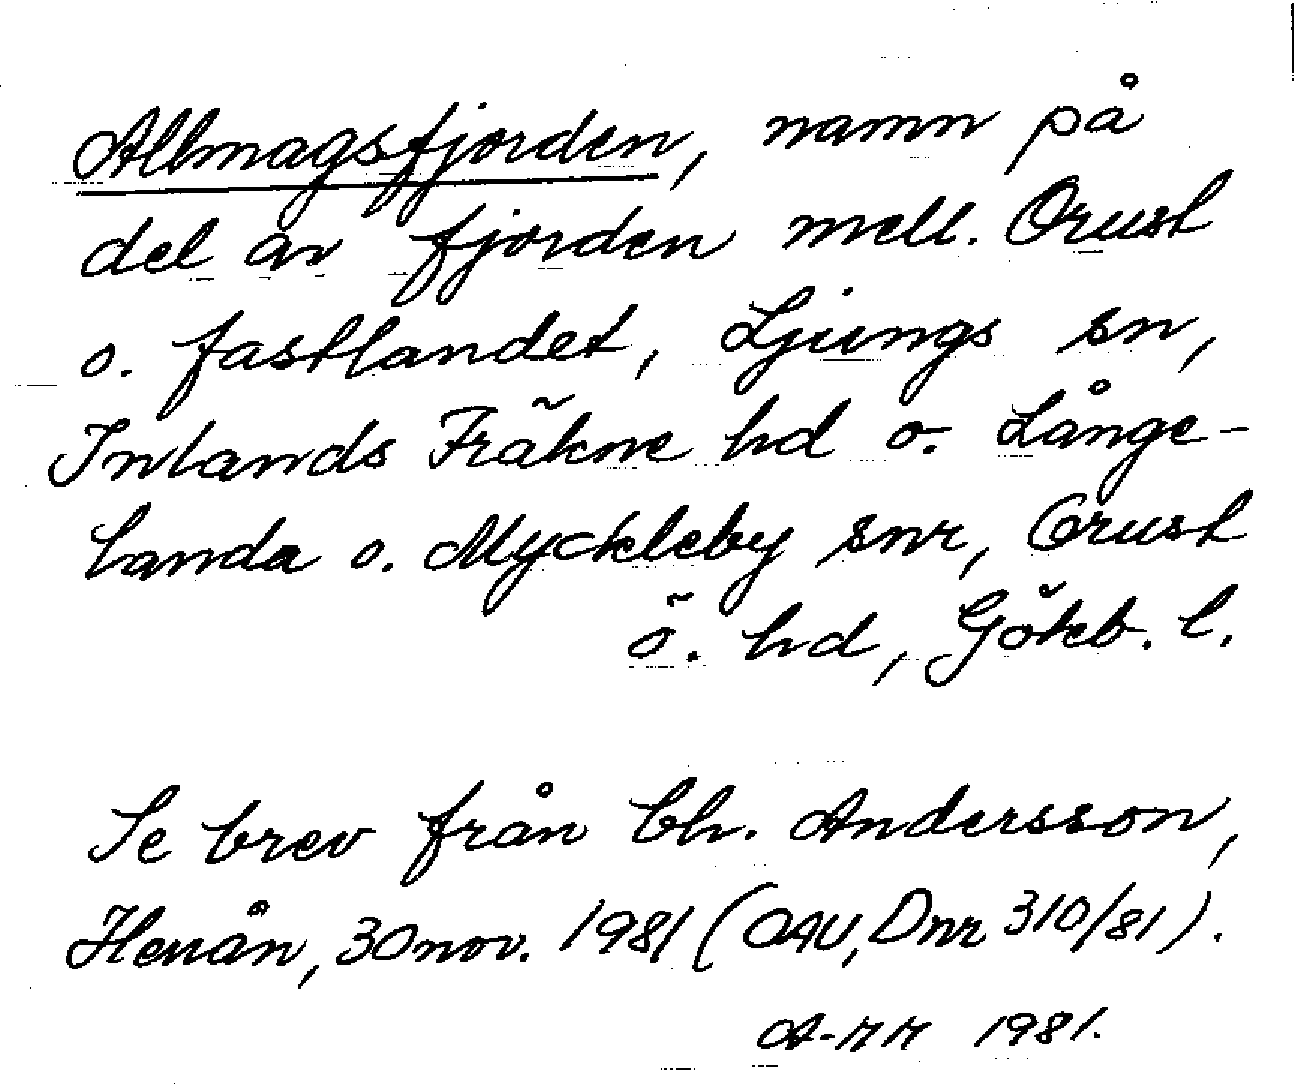 Allmagsfjorden, namn på
del av fjorden mell. Orust
o. fastlandet, Ljungs sn,
Inlands Fräkne hd o. Långe-
landa o. Myckleby snr, Orust
ö. hd, Göteb. l.
Se brev från Ch. Andersson,
Henån, 30 nov. 1981 (OAU, Dnr 310/81).
1981.